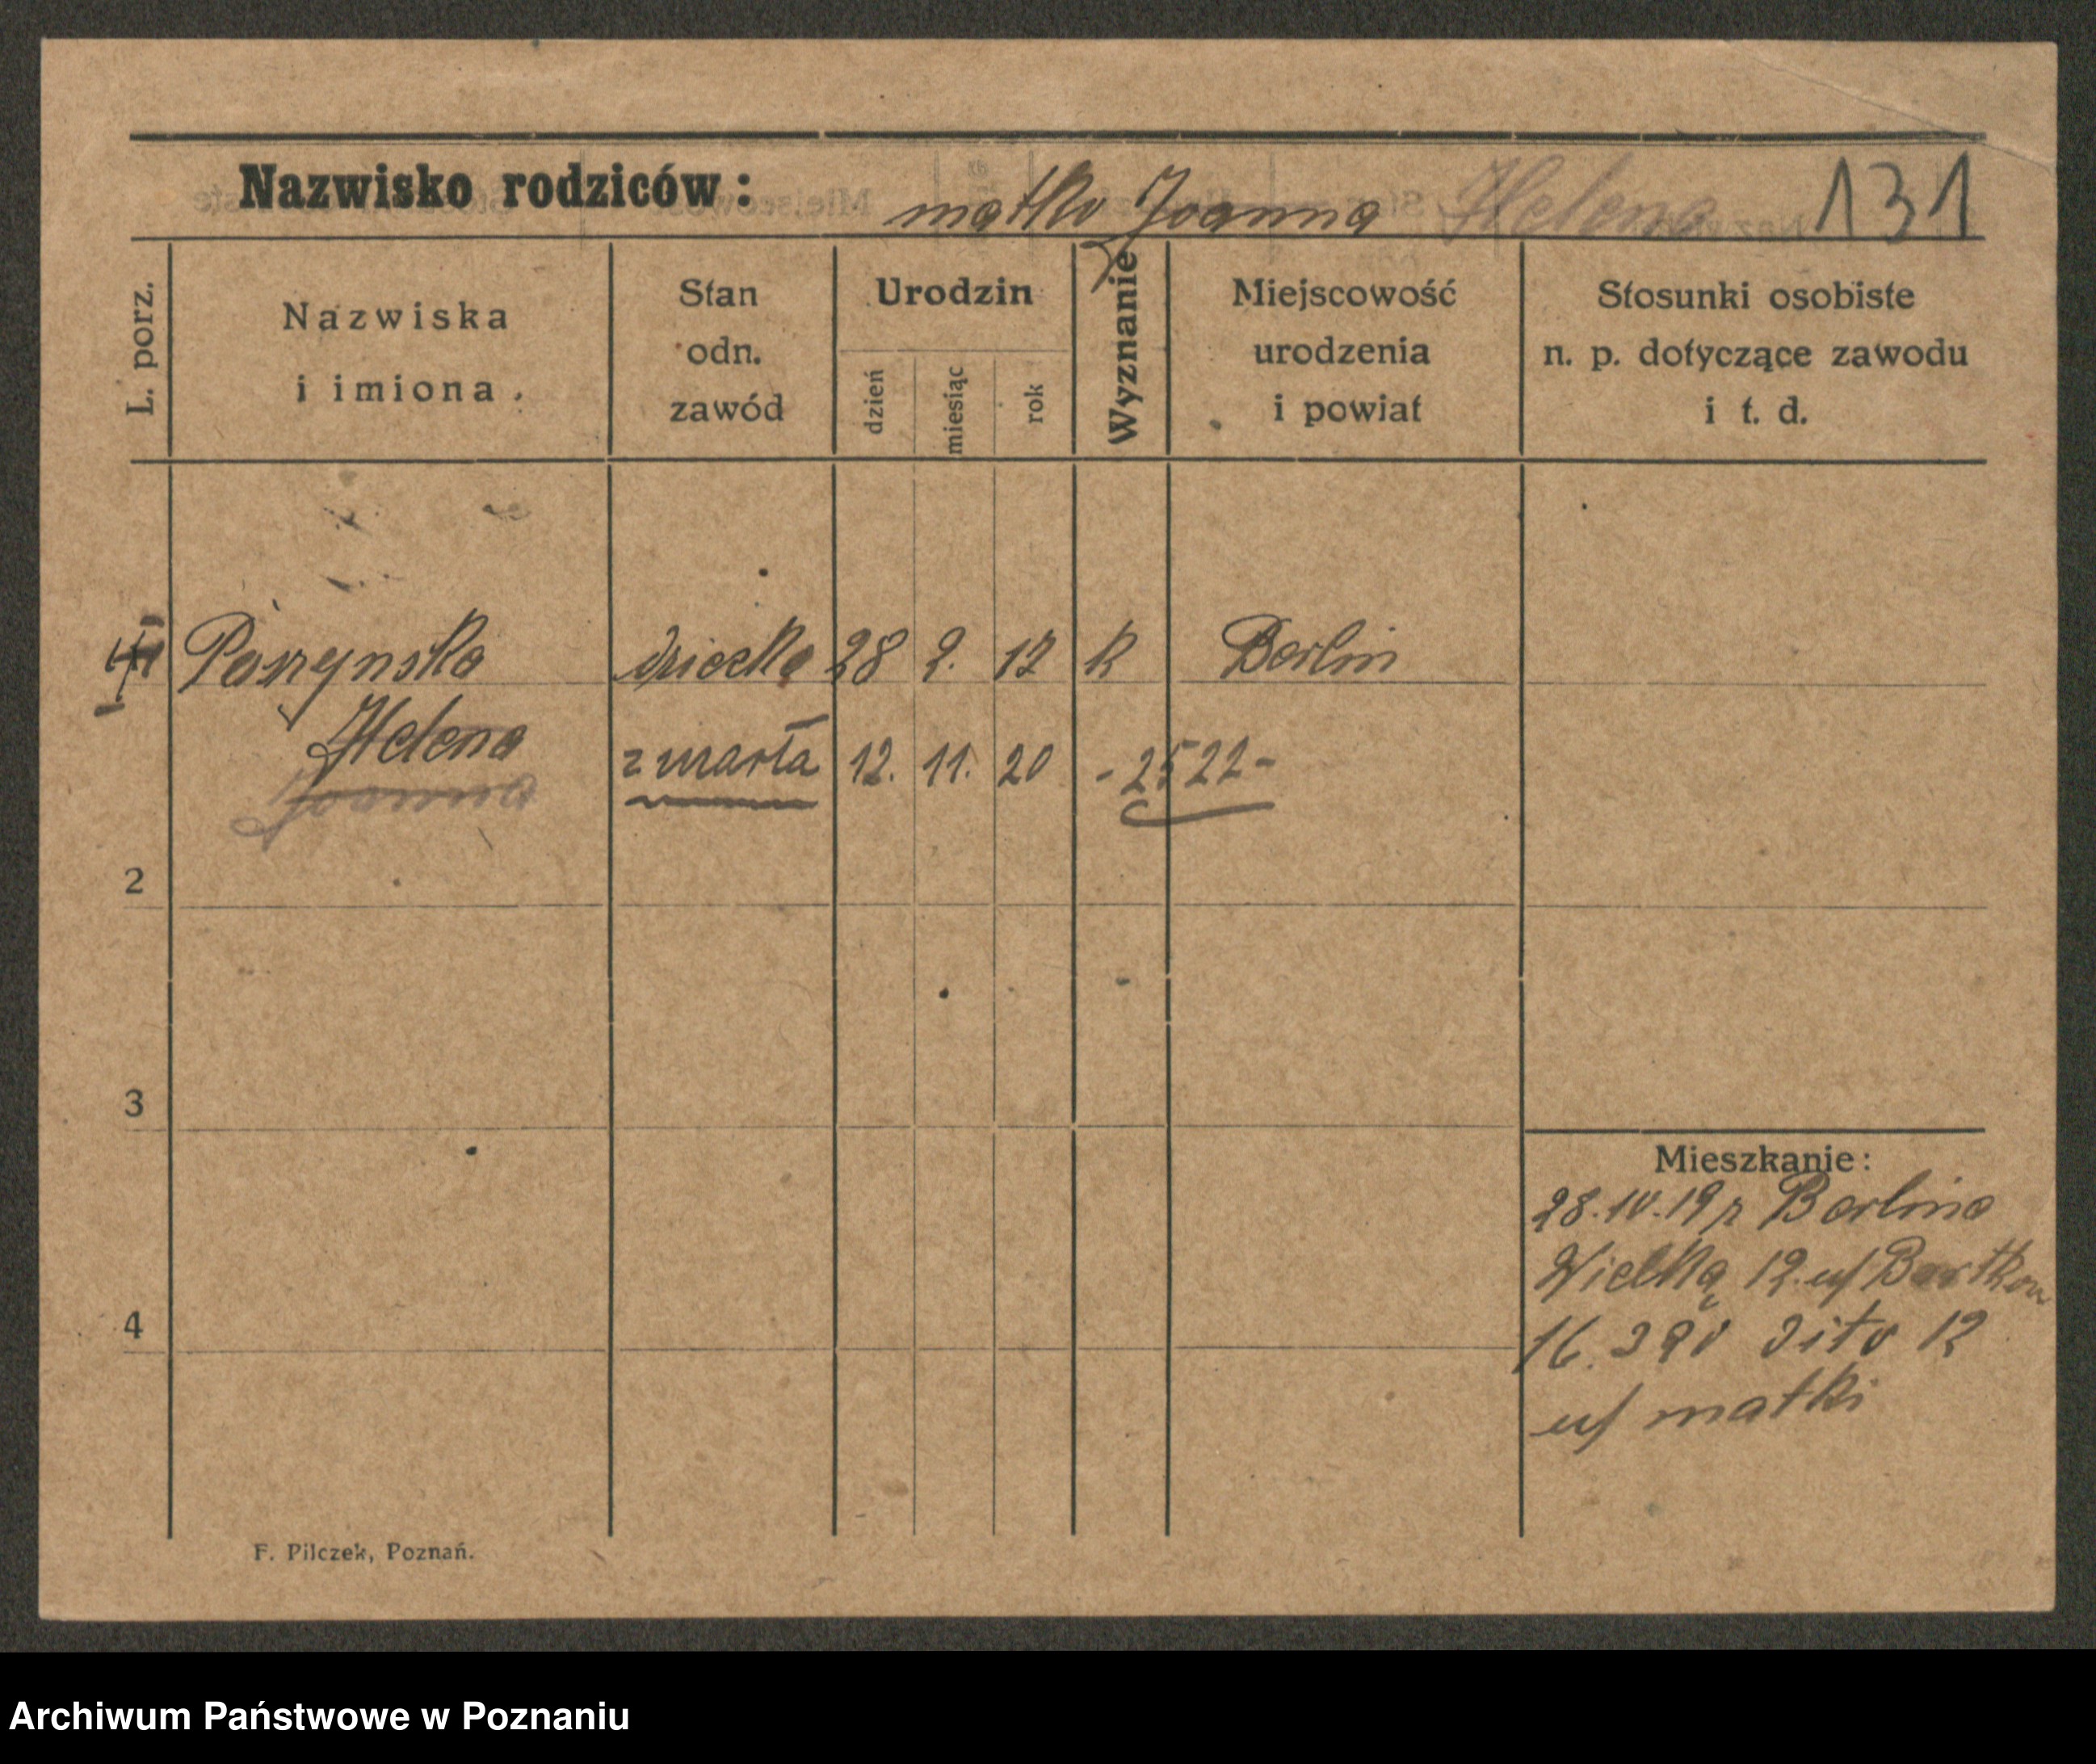 Nazwisko rodziców: matka Joanna Helena 131
L. porz.
Nazwiska
i imiona
Stan
odn.
zawód
Urodzin
dzień
miesiąc
rok
Wyznanie
Miejscowość
urodzenia
i powiat
Stosunki osobiste
n. p. dotyczące zawodu
i t. d.
Paszynska dziecko 28 2. 12 k Berlin
Helena
zmarła 12. 11. 20 -2522-
Joanna
2
3
4
Mieszkanie:
28.IV.19 z Berlina
Wielka 12. u/
16. dito 12
u/ matki
F. Pilczek, Poznań.
Archiwum Państwowe w Poznaniu